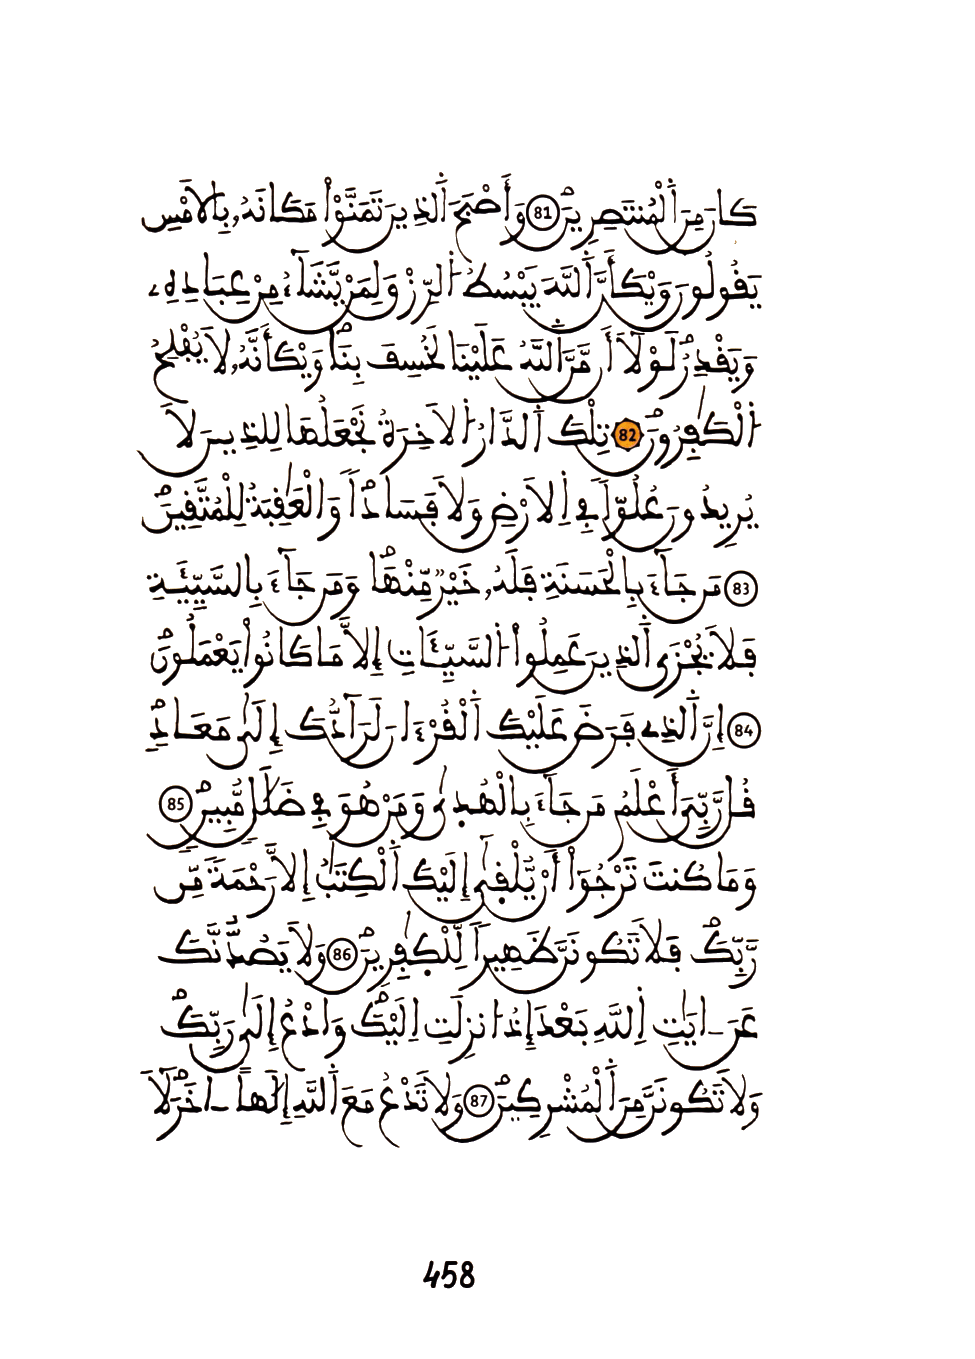 كَانَ مِنَ اَ۬لْمُنتَصِرِينَۖ 81 وَأَصْبَحَ اَ۬لذِينَ تَمَنَّوْاْ مَكَانَهُۥ بِالَامْسِ
يَقُولُونَ وَيْكَأَنَّ اَ۬للَّهَ يَبْسُطُ اُ۬لرِّزْقَ لِمَنْ يَّشَآءُ مِنْ عِبَادِهِۦ
وَيَقْدِرُ لَوْلَآ أَن مَّنَّ اَ۬للَّهُ عَلَيْنَا لَخُسِفَ بِنَاۖ وَيْكَأَنَّهُۥ لَا يُفْلِحُ
اُ۬لْكَٰفِرُونَۖ 82 تِلْكَ اَ۬لدَّارُ اُ۬لَاخِرَةُ نَجْعَلُهَا لِلذِينَ لَا
يُرِيدُونَ عُلُوّاٗ فِے اِ۬لَارْضِ وَلَا فَسَاداٗۖ وَالْعَٰقِبَةُ لِلْمُتَّقِينَۖ
83 مَن جَآءَ بِالْحَسَنَةِ فَلَهُۥ خَيْرٞ مِّنْهَاۖ وَمَن جَآءَ بِالسَّيِّئَةِ
فَلَا يُجْزَي اَ۬لذِينَ عَمِلُواْ اُ۬لسَّيِّـَٔاتِ إِلَّا مَا كَانُواْ يَعْمَلُونَۖ
84 إِنَّ اَ۬لذِے فَرَضَ عَلَيْكَ اَ۬لْقُرْءَانَ لَرَآدُّكَ إِلَيٰ مَعَادٖۖ
قُل رَّبِّيَ أَعْلَمُ مَن جَآءَ بِالْهُد۪يٰ وَمَنْ هُوَ فِے ضَلَٰلٖ مُّبِينٖۖ 85
وَمَا كُنتَ تَرْجُوٓاْ أَنْ يُّلْق۪يٰٓ إِلَيْكَ اَ۬لْكِتَٰبُ إِلَّا رَحْمَةٗ مِّن
رَّبِّكَۖ فَلَا تَكُونَنَّ ظَهِيراٗ لِّلْكٰ۪فِرِينَۖ 86 وَلَا يَصُدُّنَّكَ
عَنَ اٰيَٰتِ اِ۬للَّهِ بَعْدَ إِذُ ا۟نزِلَتِ اِلَيْكَۖ وَادْعُ إِلَيٰ رَبِّكَۖ
وَلَا تَكُونَنَّ مِنَ اَ۬لْمُشْرِكِينَۖ 87 وَلَا تَدْعُ مَعَ اَ۬للَّهِ إِلَٰهاً اٰخَرَۖ لَآ
458